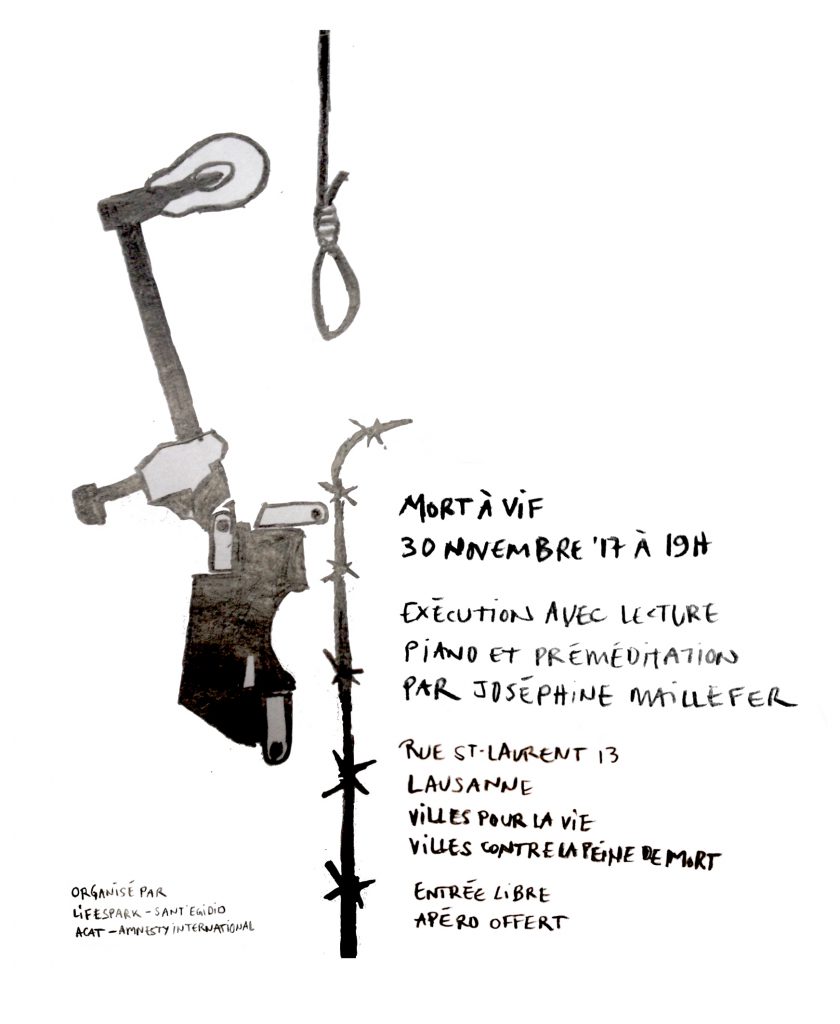 MORT À VIF
30 NOVEMBRE '17 À 19H
EXÉCUTION AVEC LECTURE
PIANO ET PRÉMÉDITATION
PAR JOSÉPHINE MAILLEFER
RUE ST-LAURENT 13
LAUSANNE
VILLES POUR LA VIE
VILLES CONTRE LA PEINE DE MORT
ENTRÉE LIBRE
APÉRO OFFERT
ORGANISÉ PAR
LIFESPARK - SANT'EGIDIO
ACAT - AMNESTY INTERNATIONAL